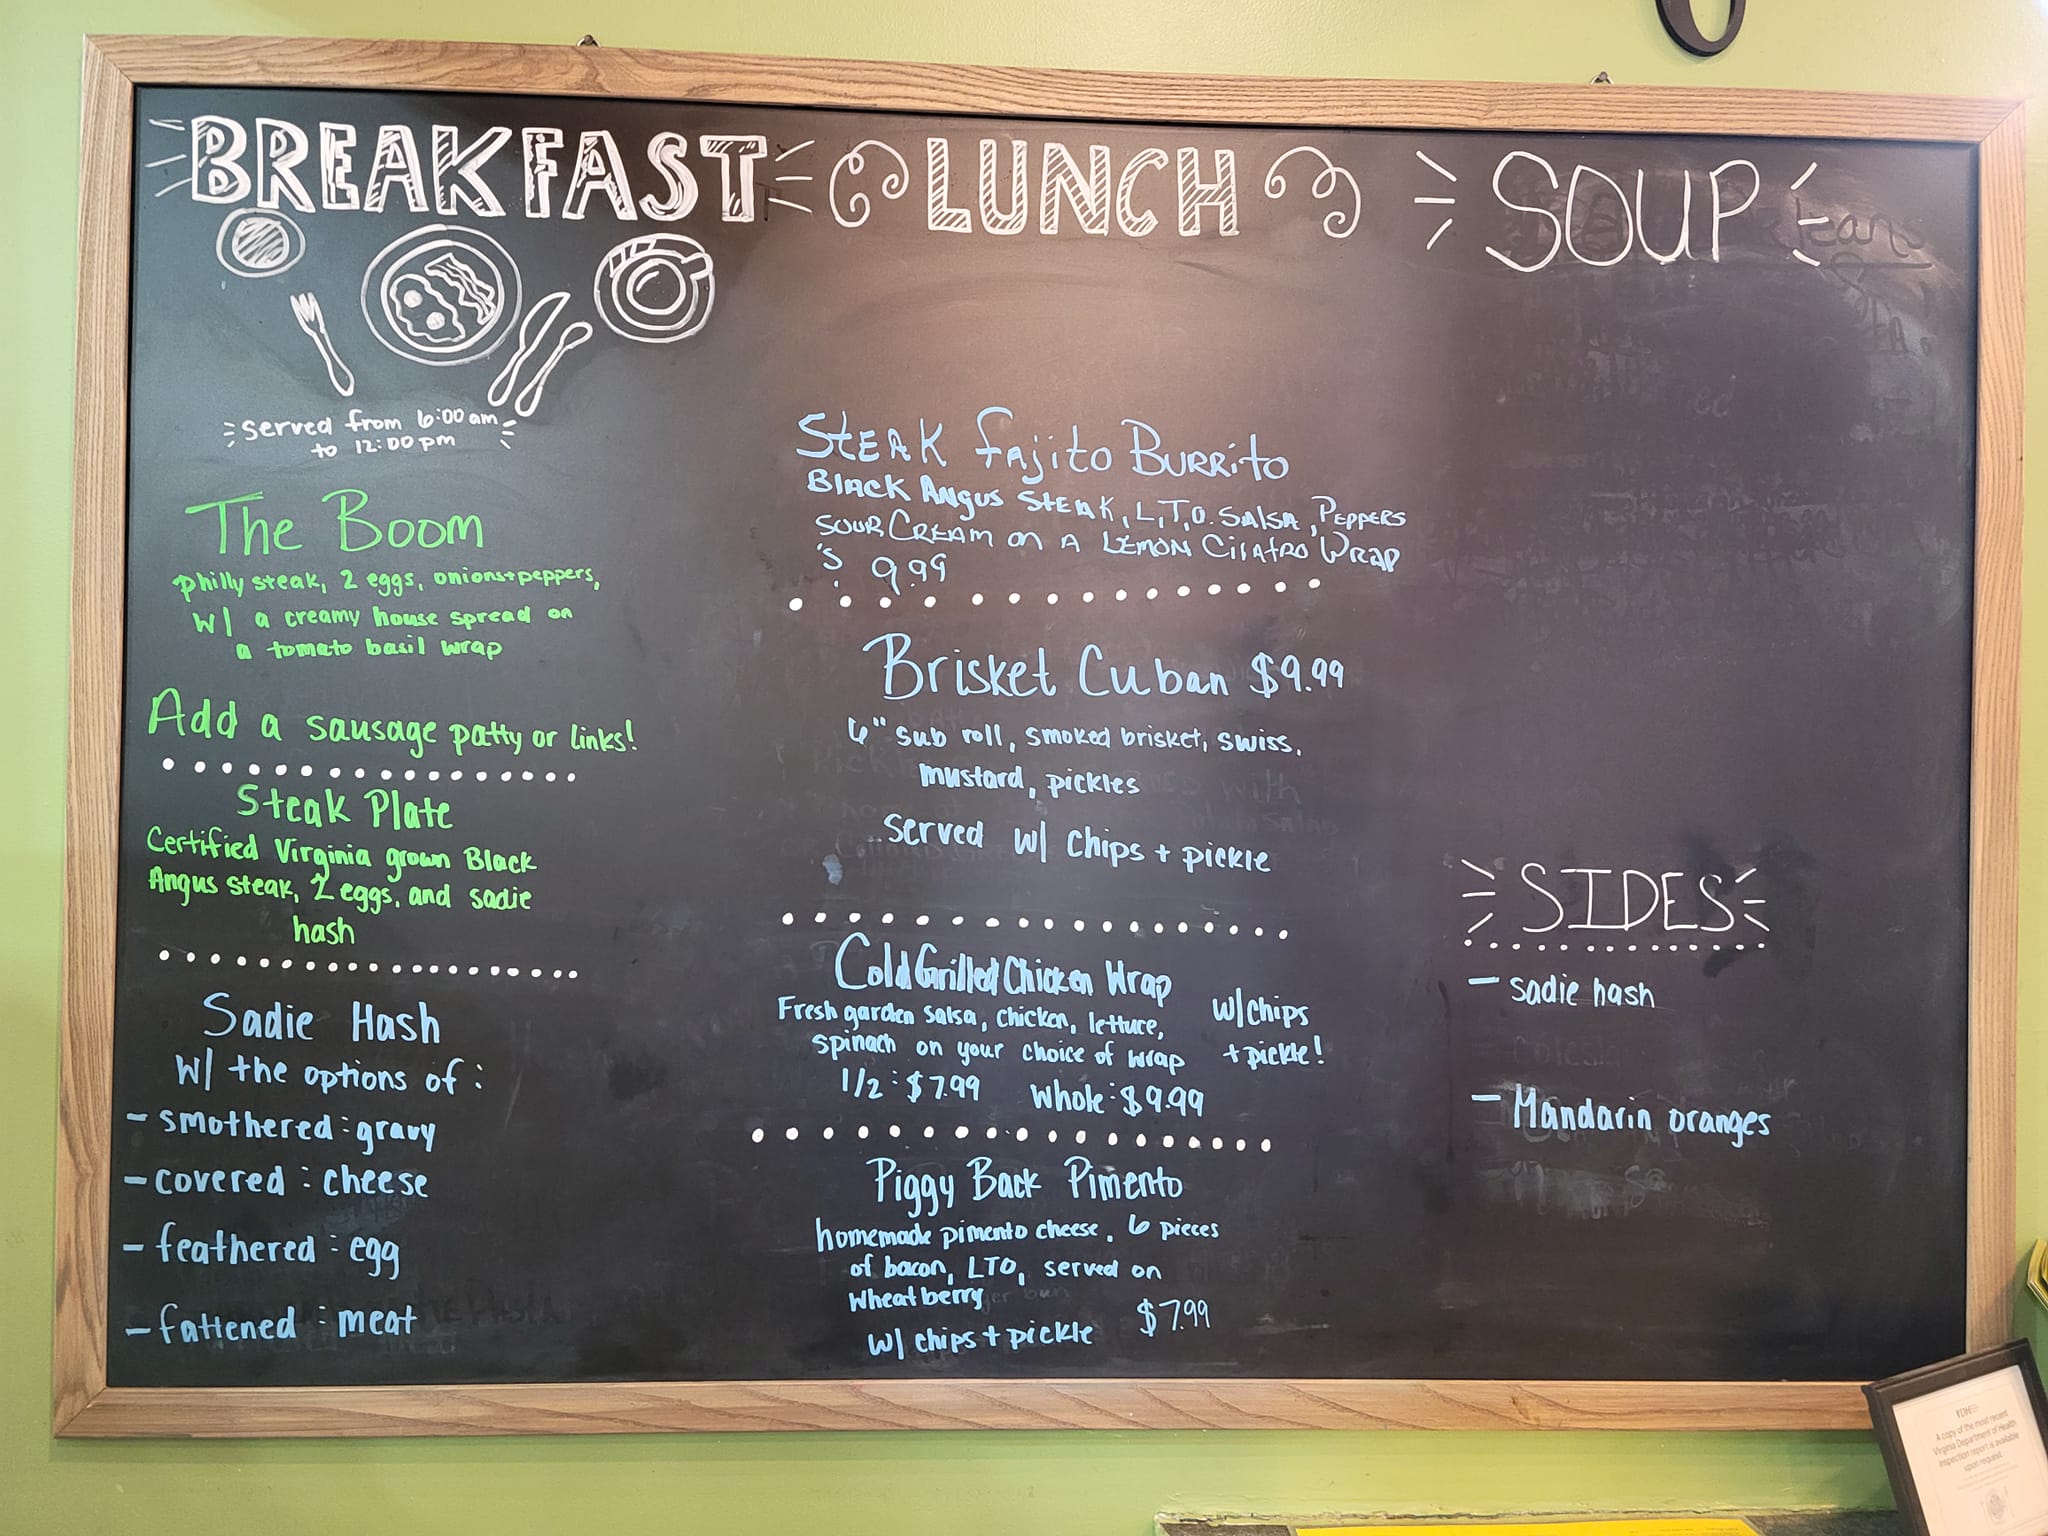 BREAKFAST
served from 6:00 am
to 12:00 pm
The Boom
philly steak, 2 eggs, onions+peppers,
w/ a creamy house spread on
a tomato basil wrap
Add a sausage patty or links!
Steak Plate
Certified Virginia grown Black
Angus steak, 2 eggs, and sadie
hash
Sadie Hash
w/ the options of:
- smothered: gravy
- covered: cheese
- feathered: egg
- fattened: meat
LUNCH
STEAK fajito BURRito
BlACK ANgus STEAK, L,T,O. SAlSA, PEPPERS
SOUR CREAM on A LEMON CilAtRO WRAP
$ 9.99
Brisket Cuban $9.99
6" sub roll, smoked brisket, swiss,
mustard, pickles
served w/ chips + pickle
Cold Grilled Chicken Wrap
Fresh garden salsa, chicken, lettuce,
spinach on your choice of wrap
w/chips
+ pickle!
1/2: $7.99 Whole: $9.99
Piggy Back Pimento
homemade pimento cheese, 6 pieces
of bacon, LTO, served on
wheat berry
w/ chips + pickle $7.99
SOUP
SIDES
- sadie hash
- Mandarin oranges
VDH
A copy of the most recent
Virginia Department of Health
inspection report is available
upon request.